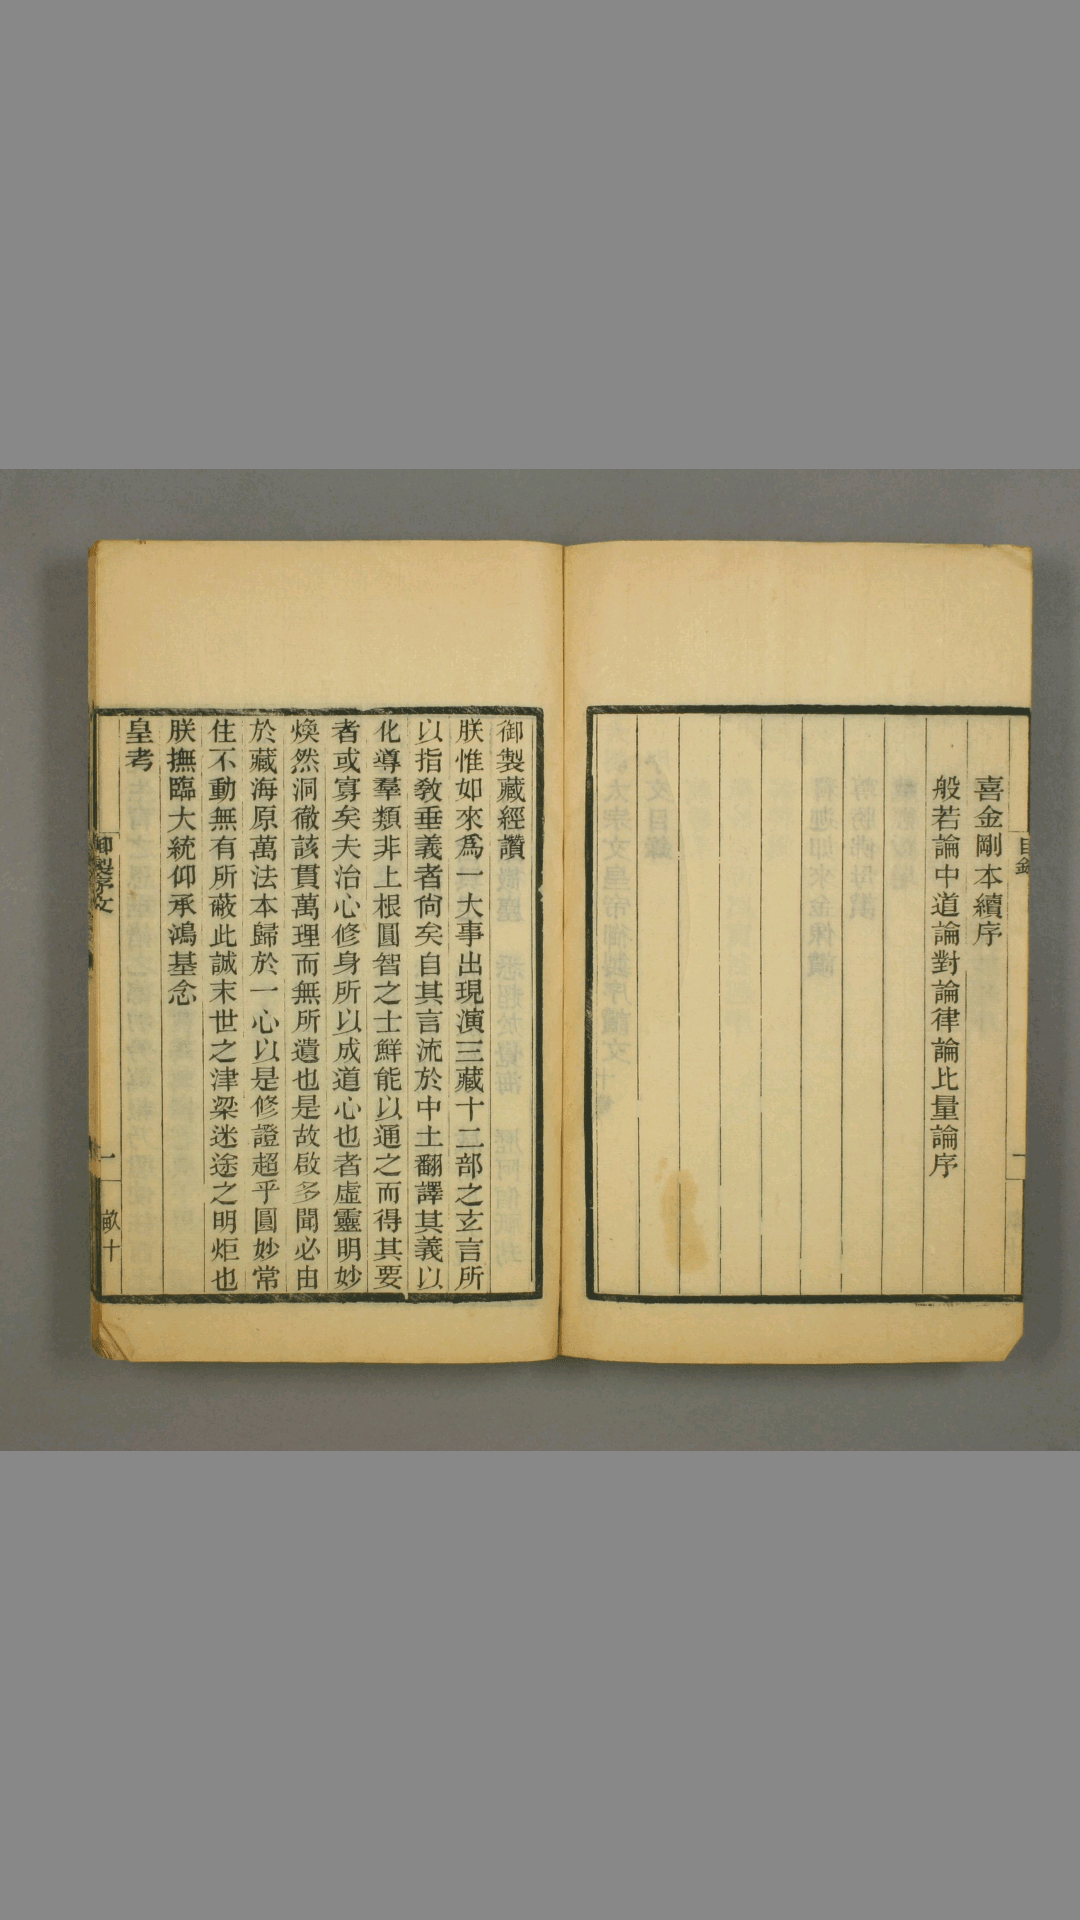 喜金剛本續序
般若論中道論對論律論比量論序
目錄
一
御製藏經讚
朕惟如來爲一大事出現演三藏十二部之玄言所
以指教垂義者尙矣自其言流於中土翻譯其義以
化導羣類非上根圓智之士鮮能以通之而得其要
者或寡矣夫治心修身所以成道心也者虛靈明妙
煥然洞徹該貫萬理而無所遺也是故啟多聞必由
於藏海原萬法本歸於一心以是修證超乎圓妙常
住不動無有所蔽此誠末世之津梁迷途之明炬也
朕撫臨大統仰承鴻基念
皇考
御製序文
一
畝十